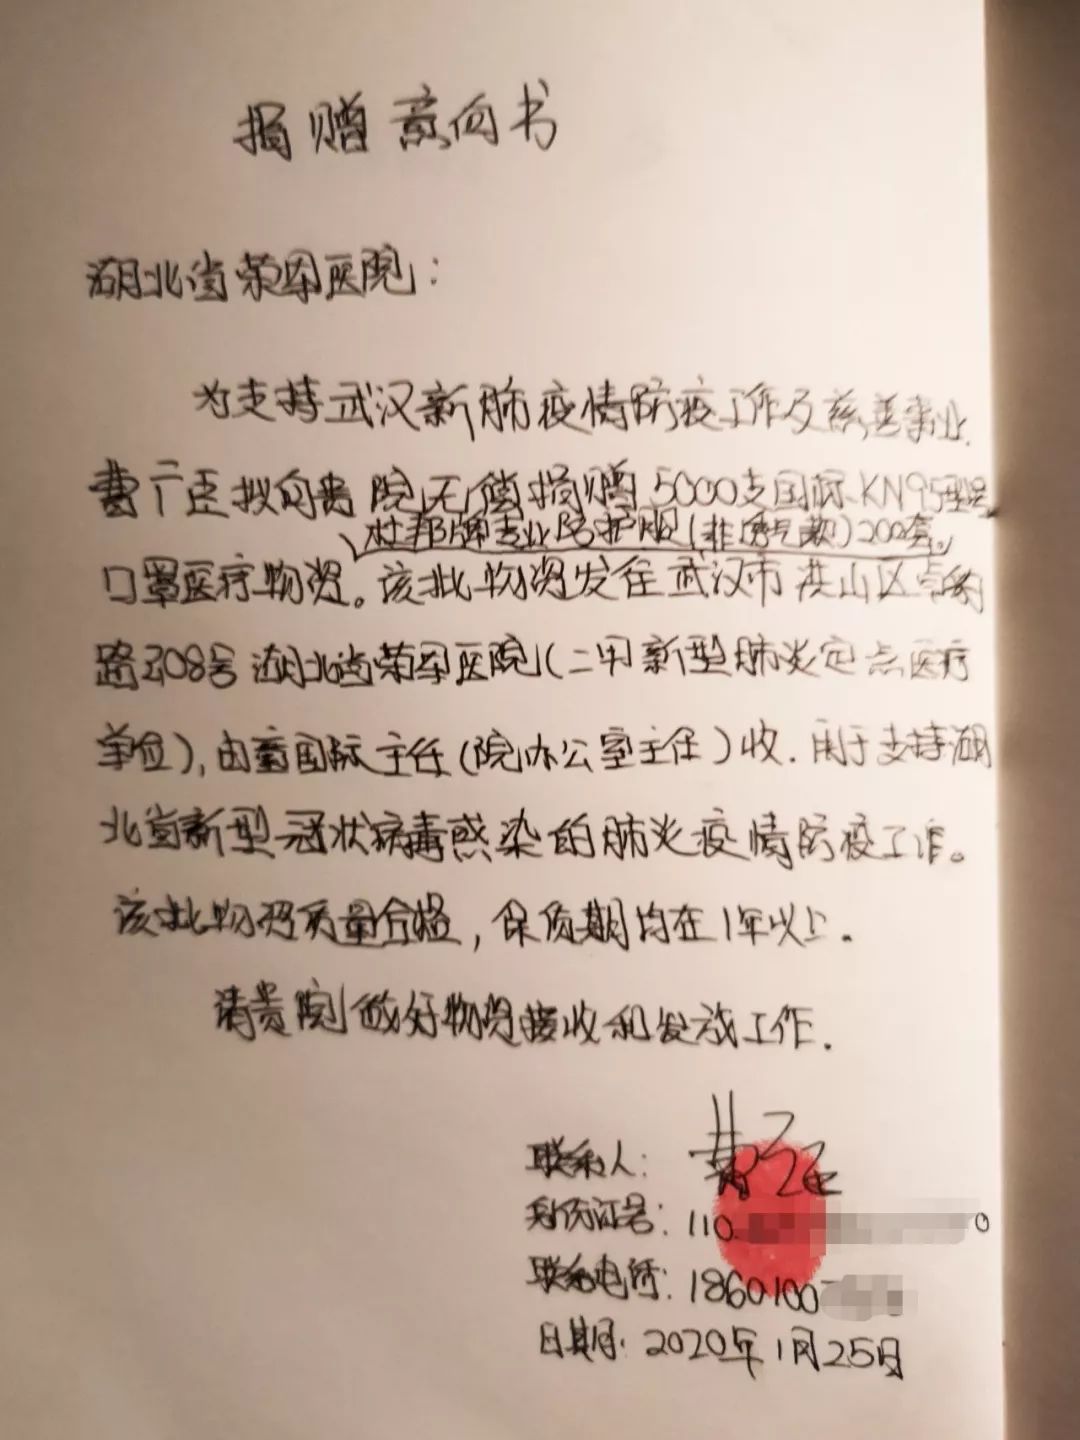 捐赠意向书
湖北省荣军医院：
为支持武汉新肺疫情防疫工作及慈善事业，
曹广臣拟向贵院无偿捐赠5000支国标KN95型号
杜邦牌专业防护服(非透气款)200套。
口罩医疗物资。该批物资发往武汉市洪山区卓豹
路308号湖北省荣军医院(二甲新型肺炎定点医疗
单位)，由董国际主任(院办公室主任)收．用于支持湖
北省新型冠状病毒感染的肺炎疫情防疫工作。
该批物资质量合格，保质期均在1年以上．
请贵院做好物资接收和发放工作．
联系人：
身份证号：110 0
联系电话：1860100
日期：2020年1月25日